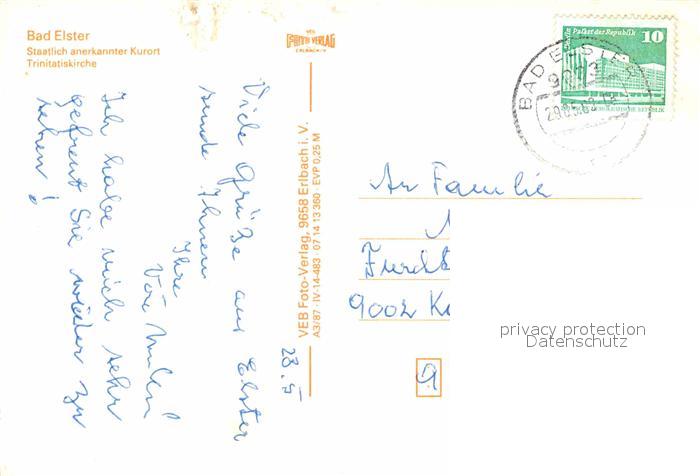 Bad Elster
Staatlich anerkannter Kurort
Trinitatiskirche
VEB
FOTO VERLAG
ERLBACH/V
Palast der Republik 10
BAD ELSTER
9933
DEMOKRATISCHE REPUBLIK
Viele Grüße aus Elster
sende Ihnen
Ihre
Ich habe mich sehr
gefreut Sie wieder zu
sehen!
28.5
VEB Foto-Verlag, 9658 Erlbach i. V.
A3/87 · IV-14-483 · 07 14 13 360 · EVP 0,25 M
An Familie
9002 K
9
privacy protection
Datenschutz